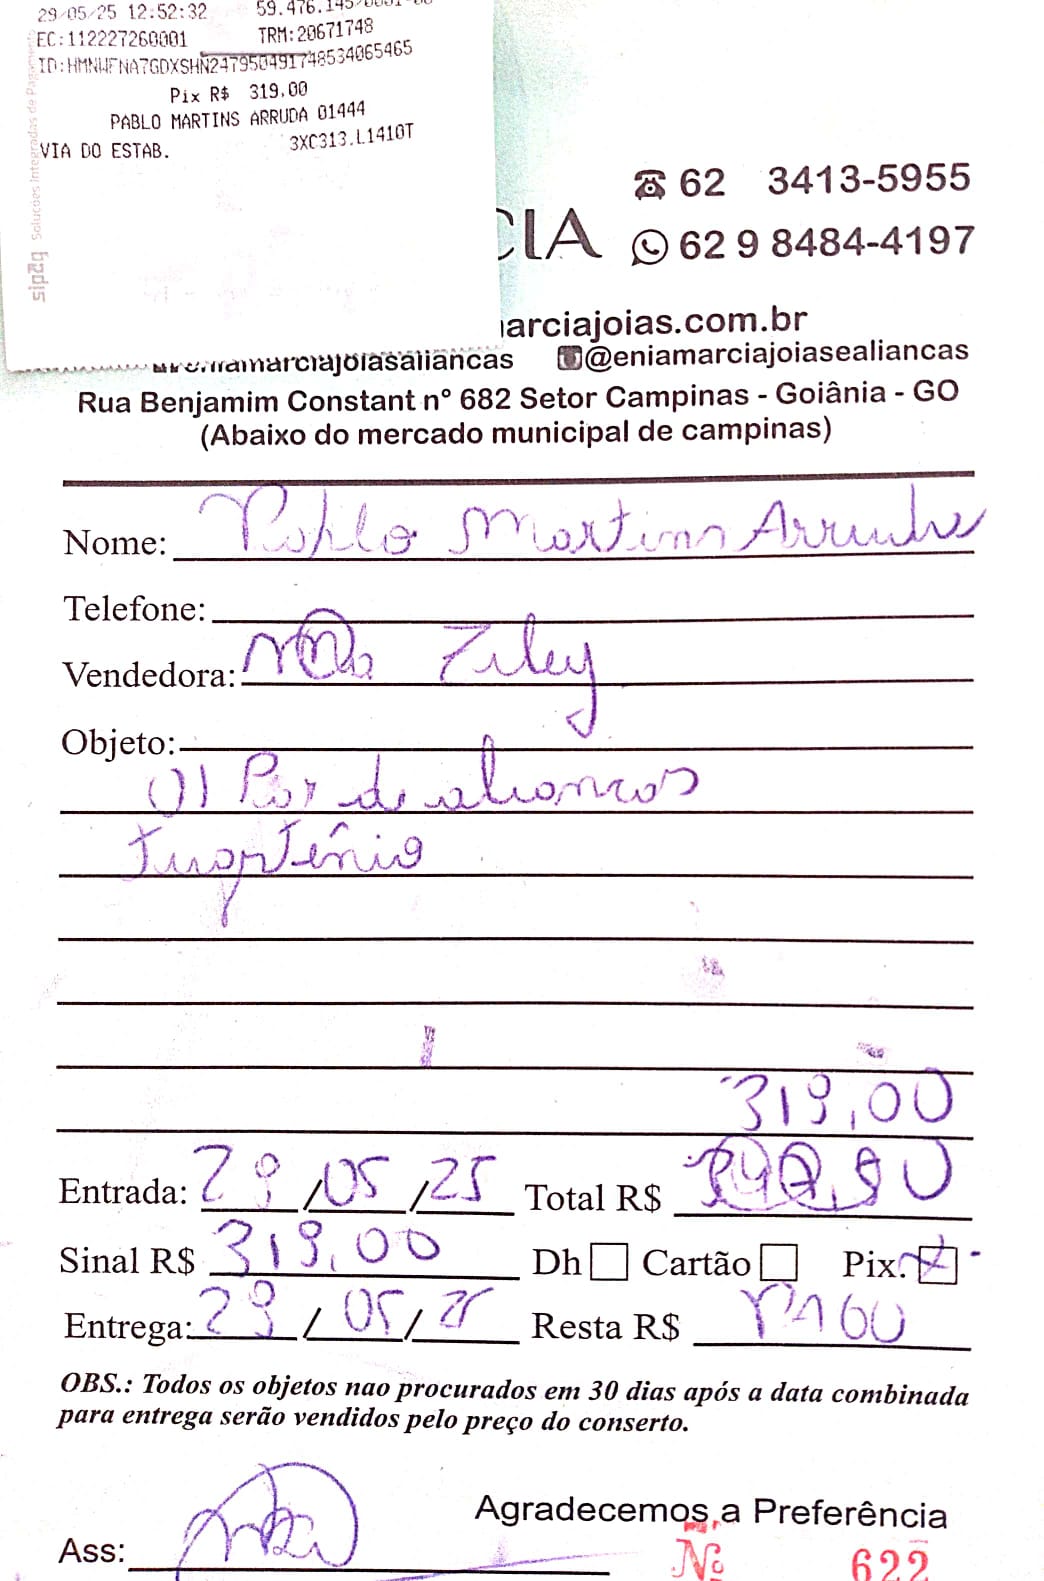 29/05/25 12:52:32 59.476.145/0001-
EC:112227260001 TRM:20671748
ID:HMNWFNA7GDXSHN247950491748534065465
Pix R$ 319,00
PABLO MARTINS ARRUDA 01444
VIA DO ESTAB. 3XC313.L1410T
Soluções Integradas de Pagamen
sipag
62 3413-5955
CIA 62 9 8484-4197
arciajoias.com.br
niamarciajoiasaliancas @eniamarciajoiasealiancas
Rua Benjamim Constant nº 682 Setor Campinas - Goiânia - GO
(Abaixo do mercado municipal de campinas)
Nome: Pablo Martins Arruda
Telefone:
Vendedora: Ziley
Objeto:
01 Par de alianças
Tungstênio
319,00
Entrada: 29/05/25 Total R$
Sinal R$ 319,00 Dh Cartão Pix. X
Entrega: 29/05/25 Resta R$ Pago
OBS.: Todos os objetos nao procurados em 30 dias após a data combinada
para entrega serão vendidos pelo preço do conserto.
Agradecemos a Preferência
Ass:
Nº 622